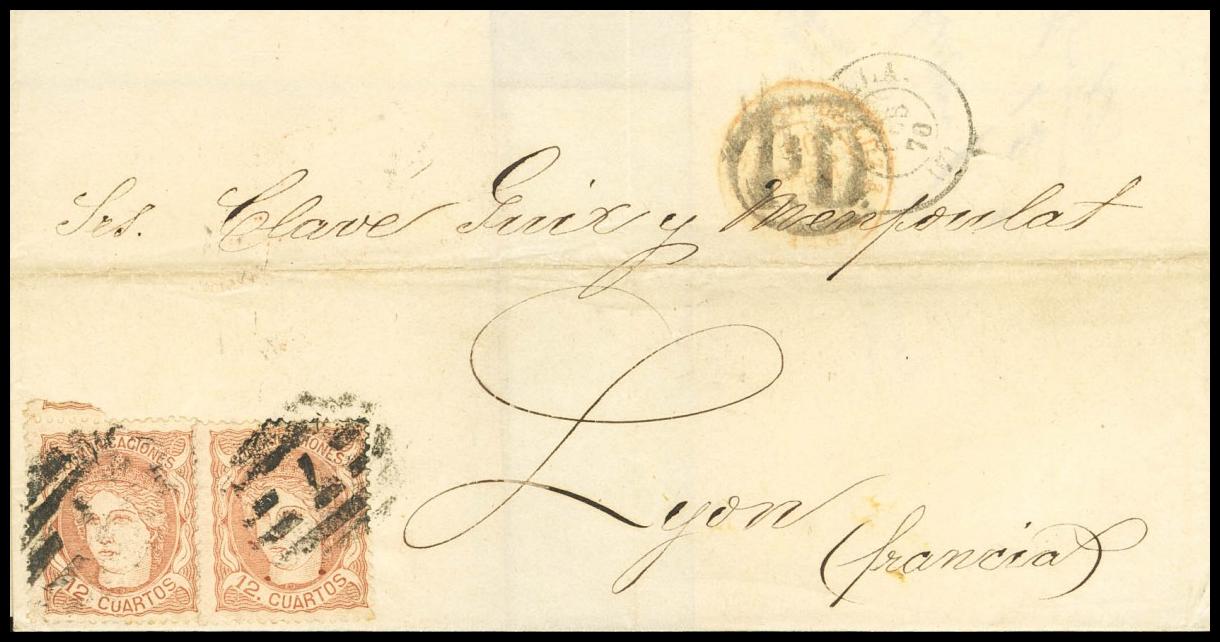 P.D.
70
Srs. Clavé Guix y Monfoulat
Lyon
(francia)
COMUNICACIONES
12. CUARTOS
COMUNICACIONES
12. CUARTOS